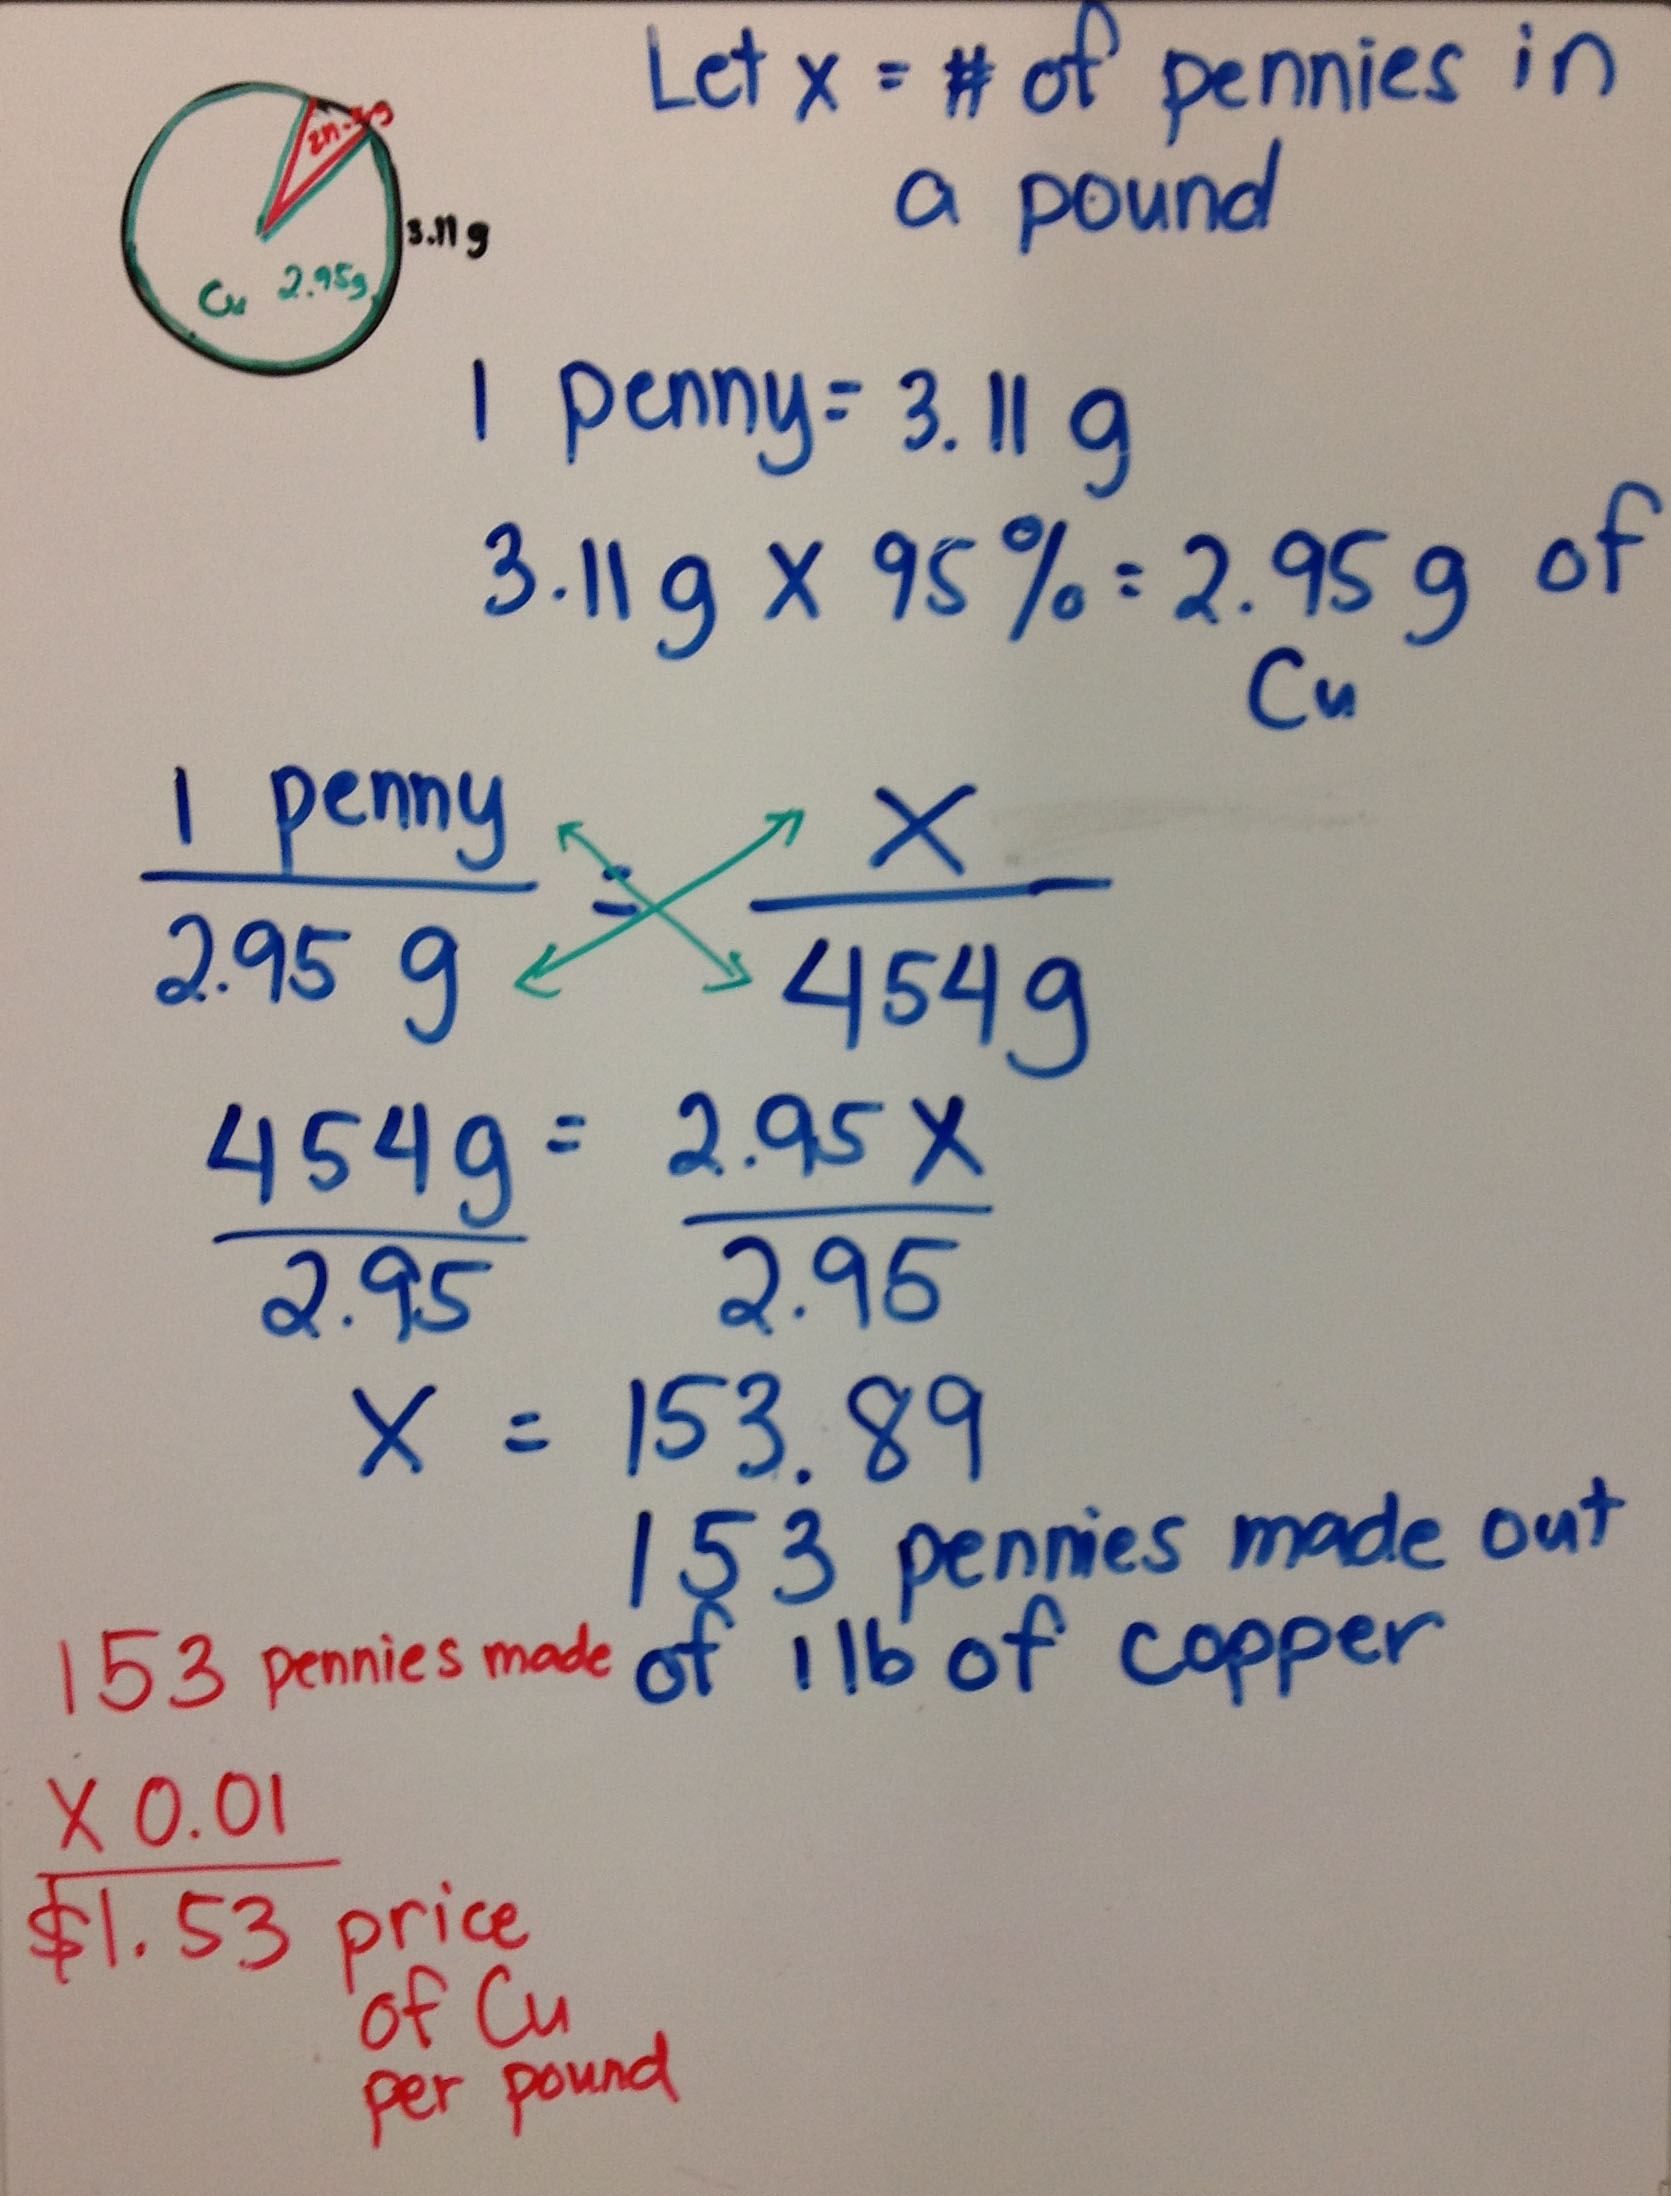 Let x = # of pennies in
a pound
3.11 g
Cu 2.95g
1 penny = 3.11 g
3.11 g X 95% = 2.95 g of
Cu
1 penny = X
2.95 g 454g
454g = 2.95 X
2.95 2.95
X = 153.89
153 pennies made out
of 1 lb of copper
153 pennies made
X 0.01
$1.53 price
of Cu
per pound